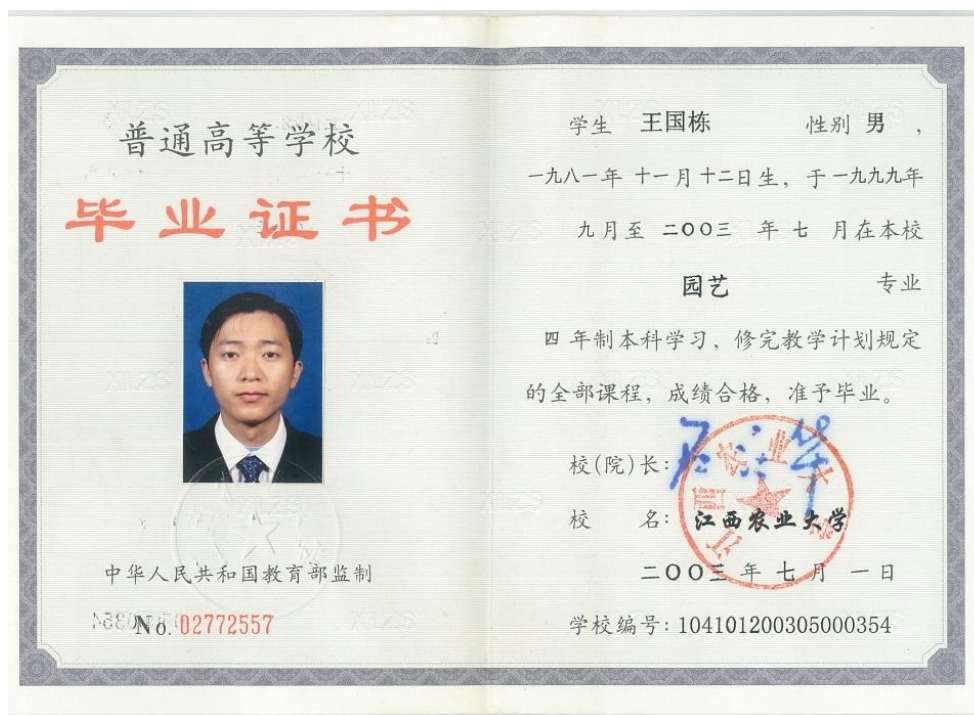 普通高等学校
毕业证书
中华人民共和国教育部监制
No. 02772557
学生 王国栋 性别 男 ,
一九八一年 十一月十二日生, 于一九九九年
九月至 二00三 年 七 月在本校
园艺 专业
四 年制本科学习, 修完教学计划规定
的全部课程, 成绩合格, 准予毕业。
校(院)长:
校 名: 江西农业大学
二00三 年 七 月 一 日
学校编号: 104101200305000354